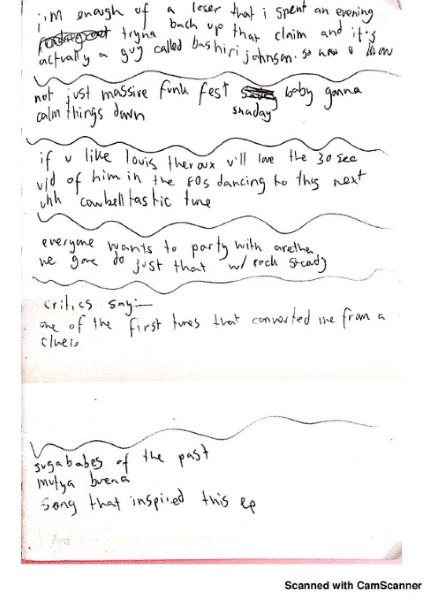 i'm enough of a loser that i spent an evening
tryna back up that claim and it's
actually a guy called bashiri johnson. so now u know
not just massive funk fest baby gonna
calm things down
shaday
if u like louis theroux u'll love the 30 sec
vid of him in the 80s dancing to this next
uhh cowbelltastic tune
everyone wants to party with aretha
we gone do just that w/ rock steady
critics say:—
one of the first tunes that converted me from a
clueis
sugababes of the past
mutya buena
song that inspired this ep
Scanned with CamScanner